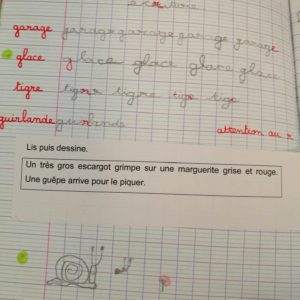 garage garage garage garage garage
glace glace glace glace glace
tigre tigre tigre tige tige
guirlande guirlande
attention au r
Lis puis dessine.
Un très gros escargot grimpe sur une marguerite grise et rouge.
Une guêpe arrive pour le piquer.